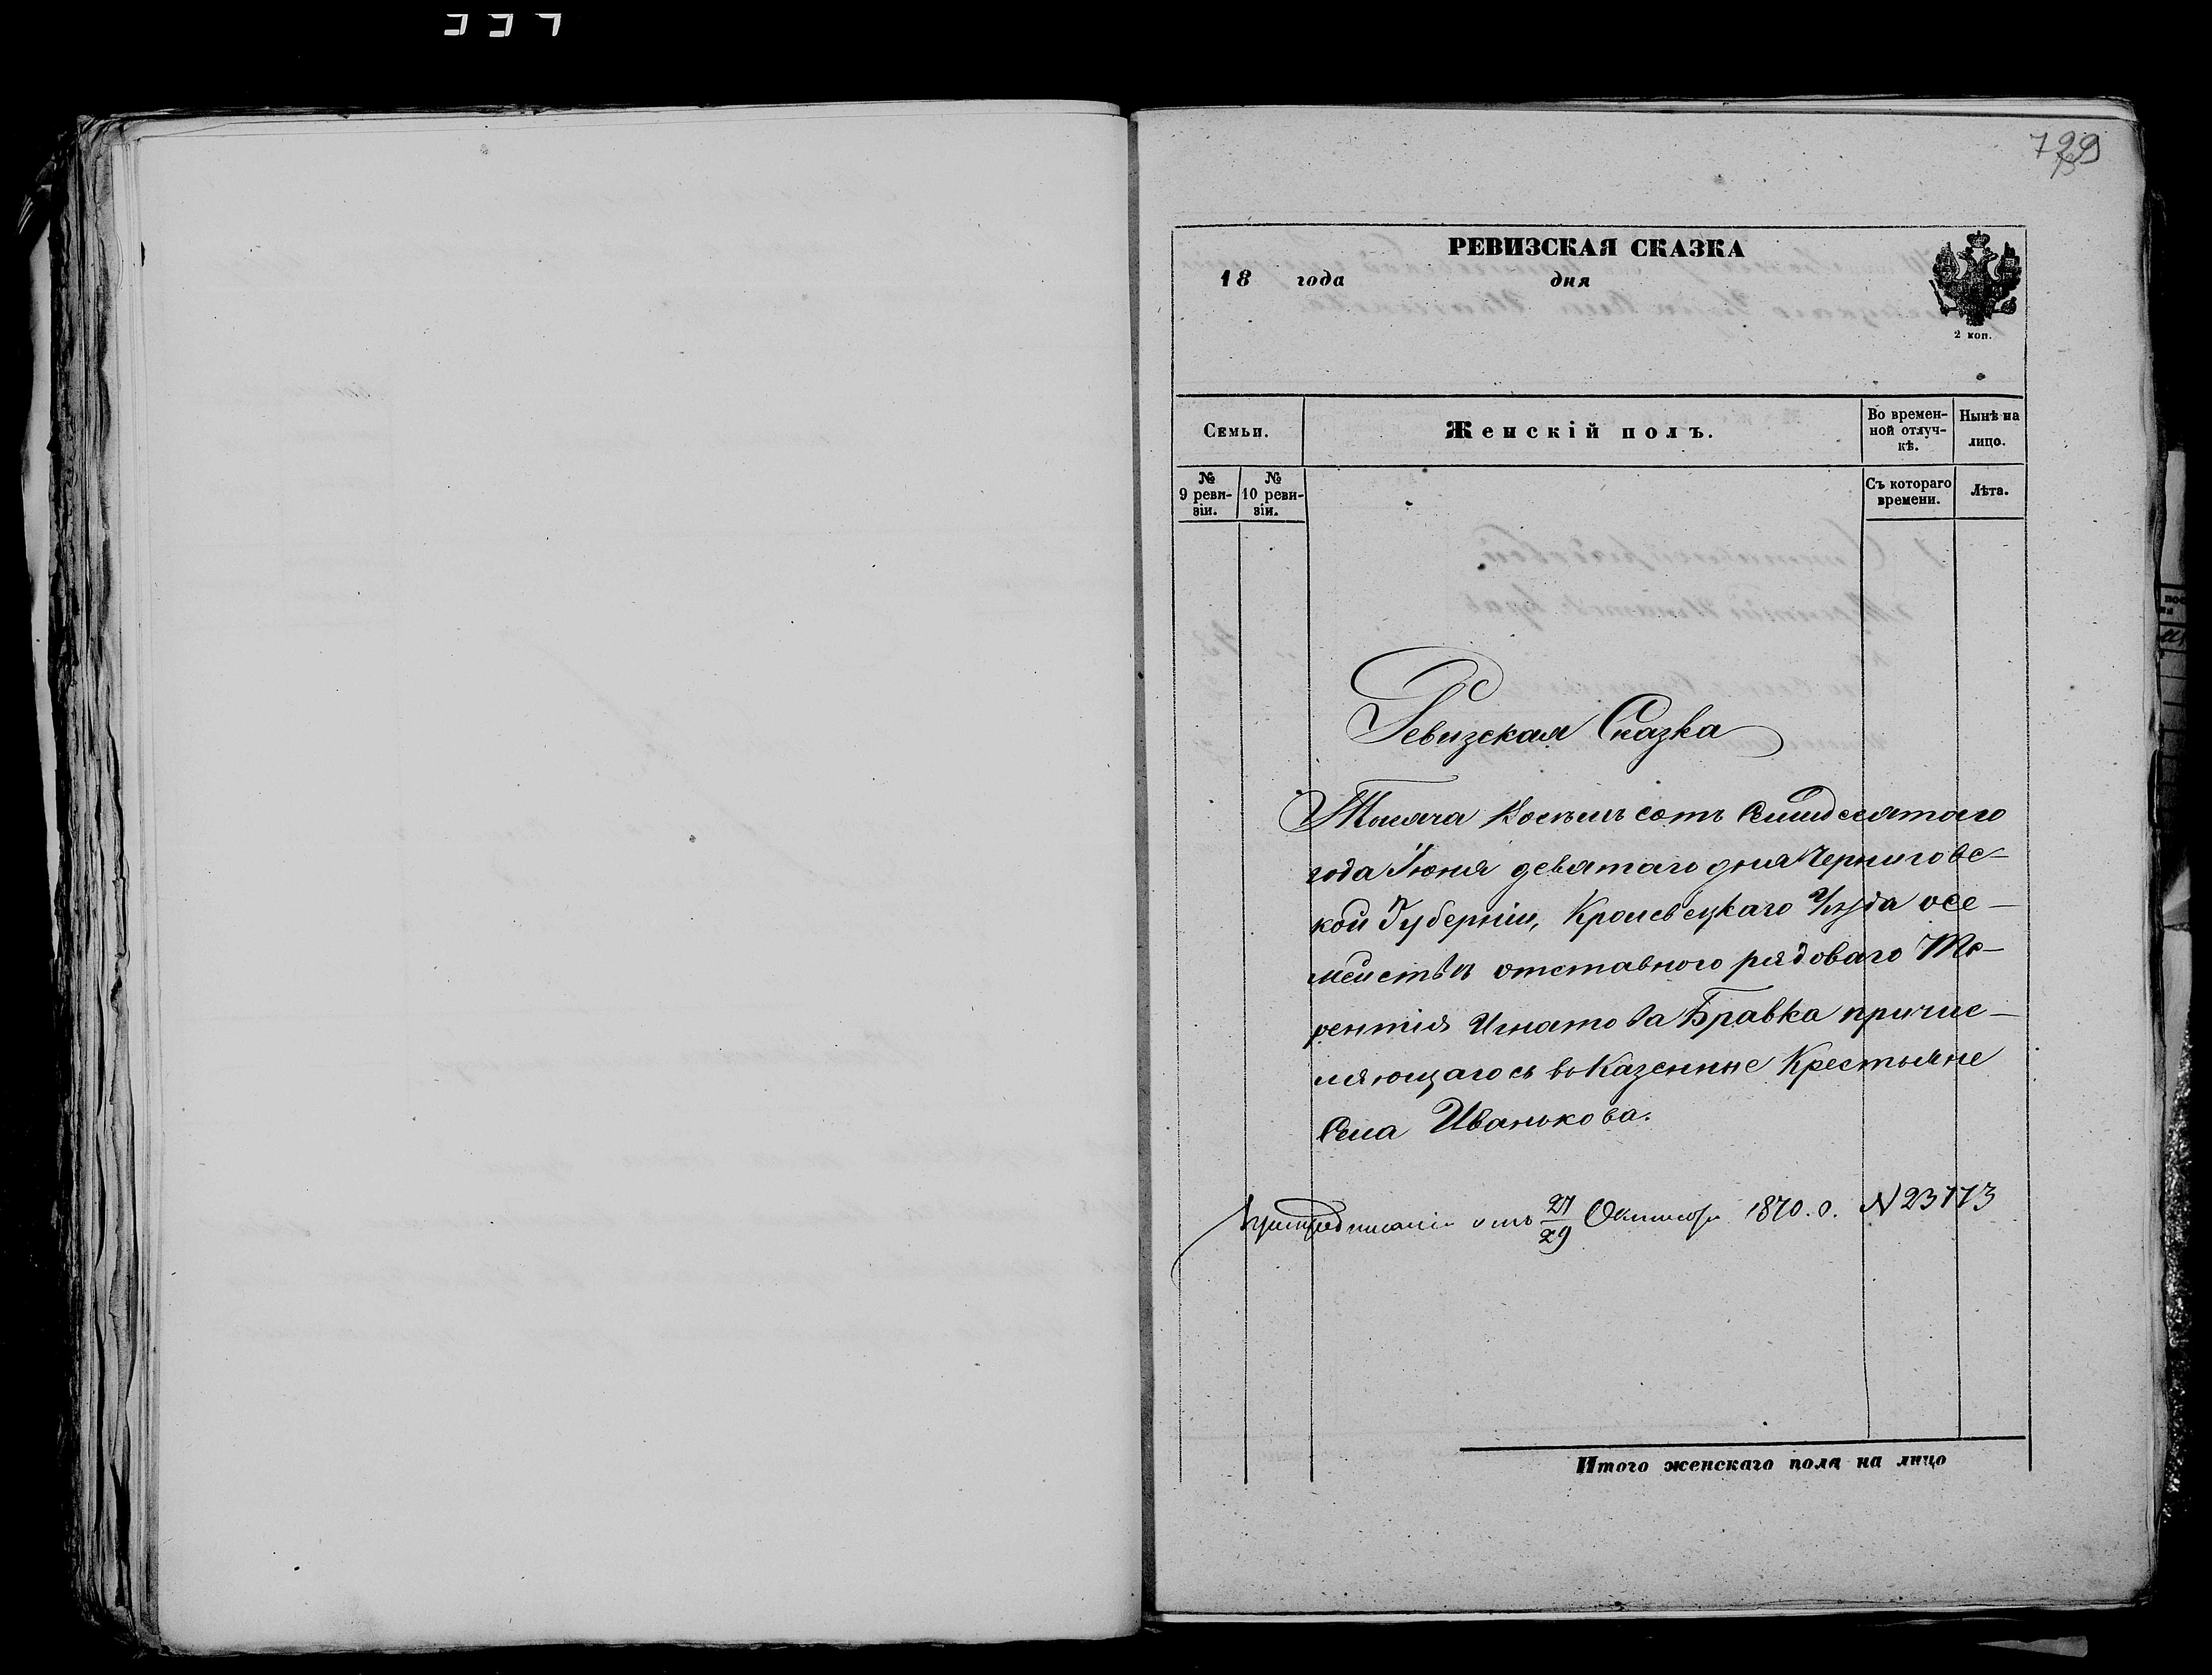 729
РЕВИЗСКАЯ СКАЗКА
18 года дня
2 коп.
Семьи.
Женскій полъ.
Во времен-
ной отлуч-
кѣ.
Нынѣ на
лицо.
№
9 реви-
зіи.
№
10 реви-
зіи.
Съ котораго
времени.
Лѣта.
Ревизская Сказка
Тысяча восемь сотъ семидесятаго
года Іюня девятаго дня Черниговс-
кой Губерніи, Кролевецкаго Уѣзда о се-
мействѣ отставного рядоваго Те-
рентія Игнатова Бравка причис-
ляющагося в казенные крестьяне
села Иванькова.
При предписаніи отъ 27/29 Октября 1870. г. N 23773
Итого женскаго пола на лицо